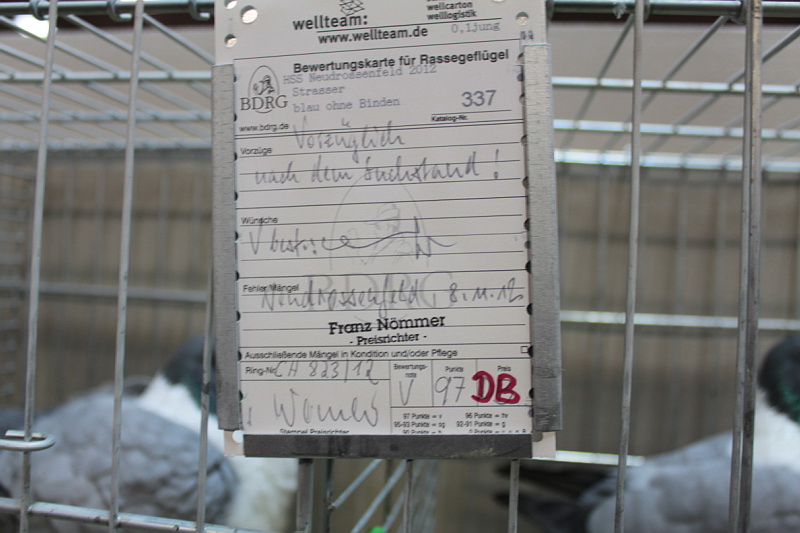 wellteam:
wellcarton
welllogistik
www.wellteam.de
0,1jung
Bewertungskarte für Rassegeflügel
BDRG
HSS Neudrossenfeld 2012
Strasser
blau ohne Binden
337
Katalog-Nr.
www.bdrg.de
Vorzüglich
Vorzüge
nach dem Zuchstand!
Wünsche
V
Fehler/Mängel
Neudrossenfeld, 8.11.12
Franz Nömmer
- Preisrichter -
Ausschließende Mängel in Kondition und/oder Pflege
Ring-Nr. CH 823/12
Bewertungs-
note
V
Punkte
97
Preis
DB
Stempel Preisrichter
97 Punkte = v
96 Punkte = hv
95-93 Punkte = sg
92-91 Punkte = g